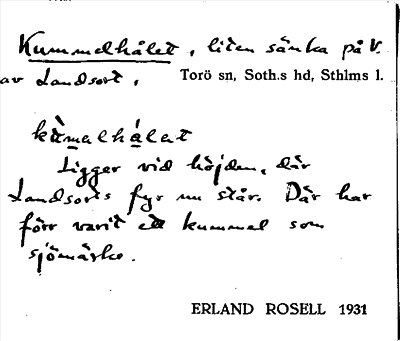 Kummelhålet, liten sänka på V.
av Landsort. Torö sn, Soth.s hd, Sthlms l.
kùmalhálat
Ligger vid höjden, där
Landsorts fyr nu står. Där har
förr varit ett kummel som
sjömärke.
ERLAND ROSELL 1931